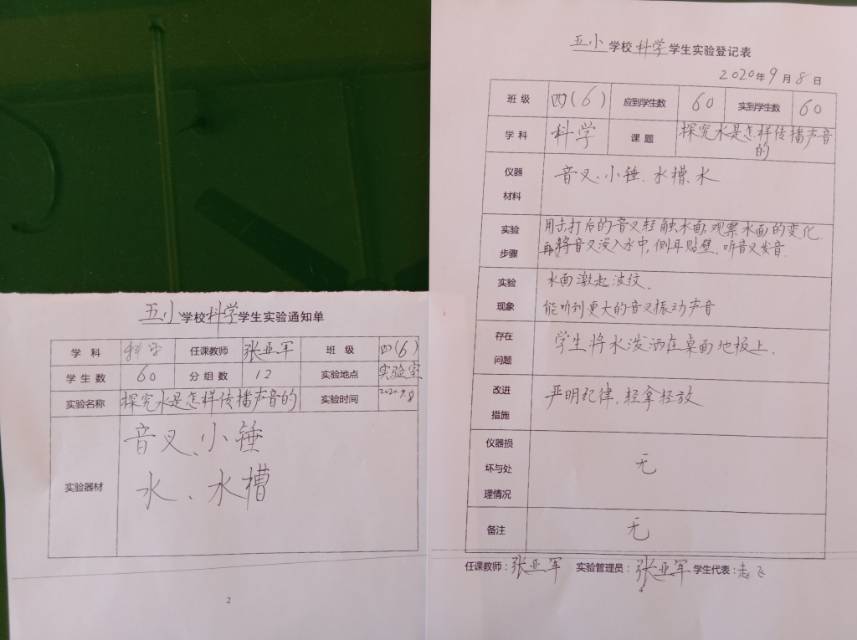 五小学校科学学生实验通知单
学科 科学 任课教师 张亚军 班级 四(6)
学生数 60 分组数 12 实验地点 实验室
实验名称 探究水是怎样传播声音的 实验时间 2020.9.8
实验器材 音叉、小锤
水、水槽
2
五小学校科学学生实验登记表
2020年9月8日
班级 四(6) 应到学生数 60 实到学生数 60
学科 科学 课题 探究水是怎样传播声音
的
仪器
材料
音叉、小锤、水槽、水
实验
步骤
用击打后的音叉轻触水面,观察水面的变化
再将音叉浸入水中,侧耳贴壁,听音叉发音.
实验
现象
水面激起波纹.
能听到更大的音叉振动声音
存在
问题
学生将水泼洒在桌面地板上.
改进
措施
严明纪律,轻拿轻放
仪器损
坏与处
理情况
无
备注 无
任课教师:张亚军 实验管理员:张亚军 学生代表:飞